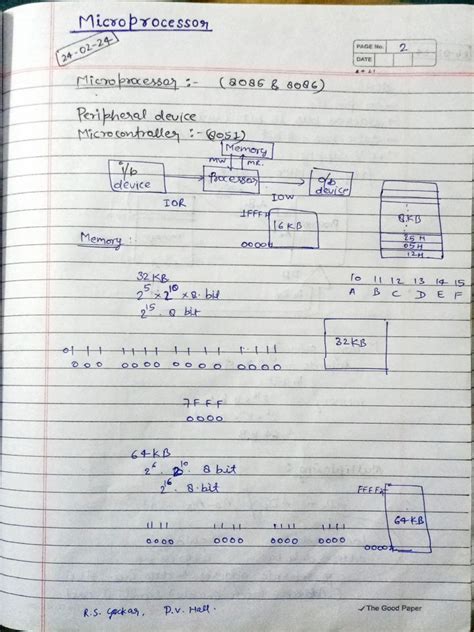 Microprocessor
24-02-24
PAGE No. 2
DATE
Microprocessor :- (8085 & 8086)
Peripheral device
Microcontroller :- (8051)
Memory
MW MR
I/p device
Processor
O/p device
IOR
IOW
1FFF
16 KB
0000
8KB
25H
05H
12H
Memory :
10 11 12 13 14 15
A B C D E F
32KB
2^5 × 2^10 × 8-bit
2^15 . 8 bit
32KB
01 1 1 1 1 1 1 1 1 1 1 1 1 1 1
0000 0000 0000 0000
7FFF
0000
64KB
2^6 . 2^10 . 8 bit
2^16 . 8-bit
FFFF
64KB
0000
1111 1111 1111 1111
0000 0000 0000 0000
R.S. Gaokar, D.V. Hall.
The Good Paper